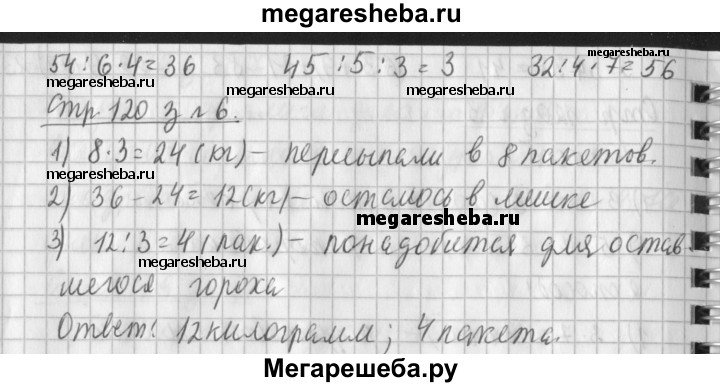 megaresheba.ru
54:6·4=36 45:5:3=3 32:4·7=56
megaresheba.ru megaresheba.ru megaresheba.ru
Стр 120 з № 6.
1) 8·3=24 (кг) – пересыпали в 8 пакетов.
megaresheba.ru megaresheba.ru
2) 36-24=12(кг) – осталось в мешке
megaresheba.ru
3) 12:3=4 (пак.) – понадобится для остав
megaresheba.ru
шегося гороха
Ответ: 12 килограмм; 4 пакета.
megaresheba.ru megaresheba.ru
Мегарешеба.ру